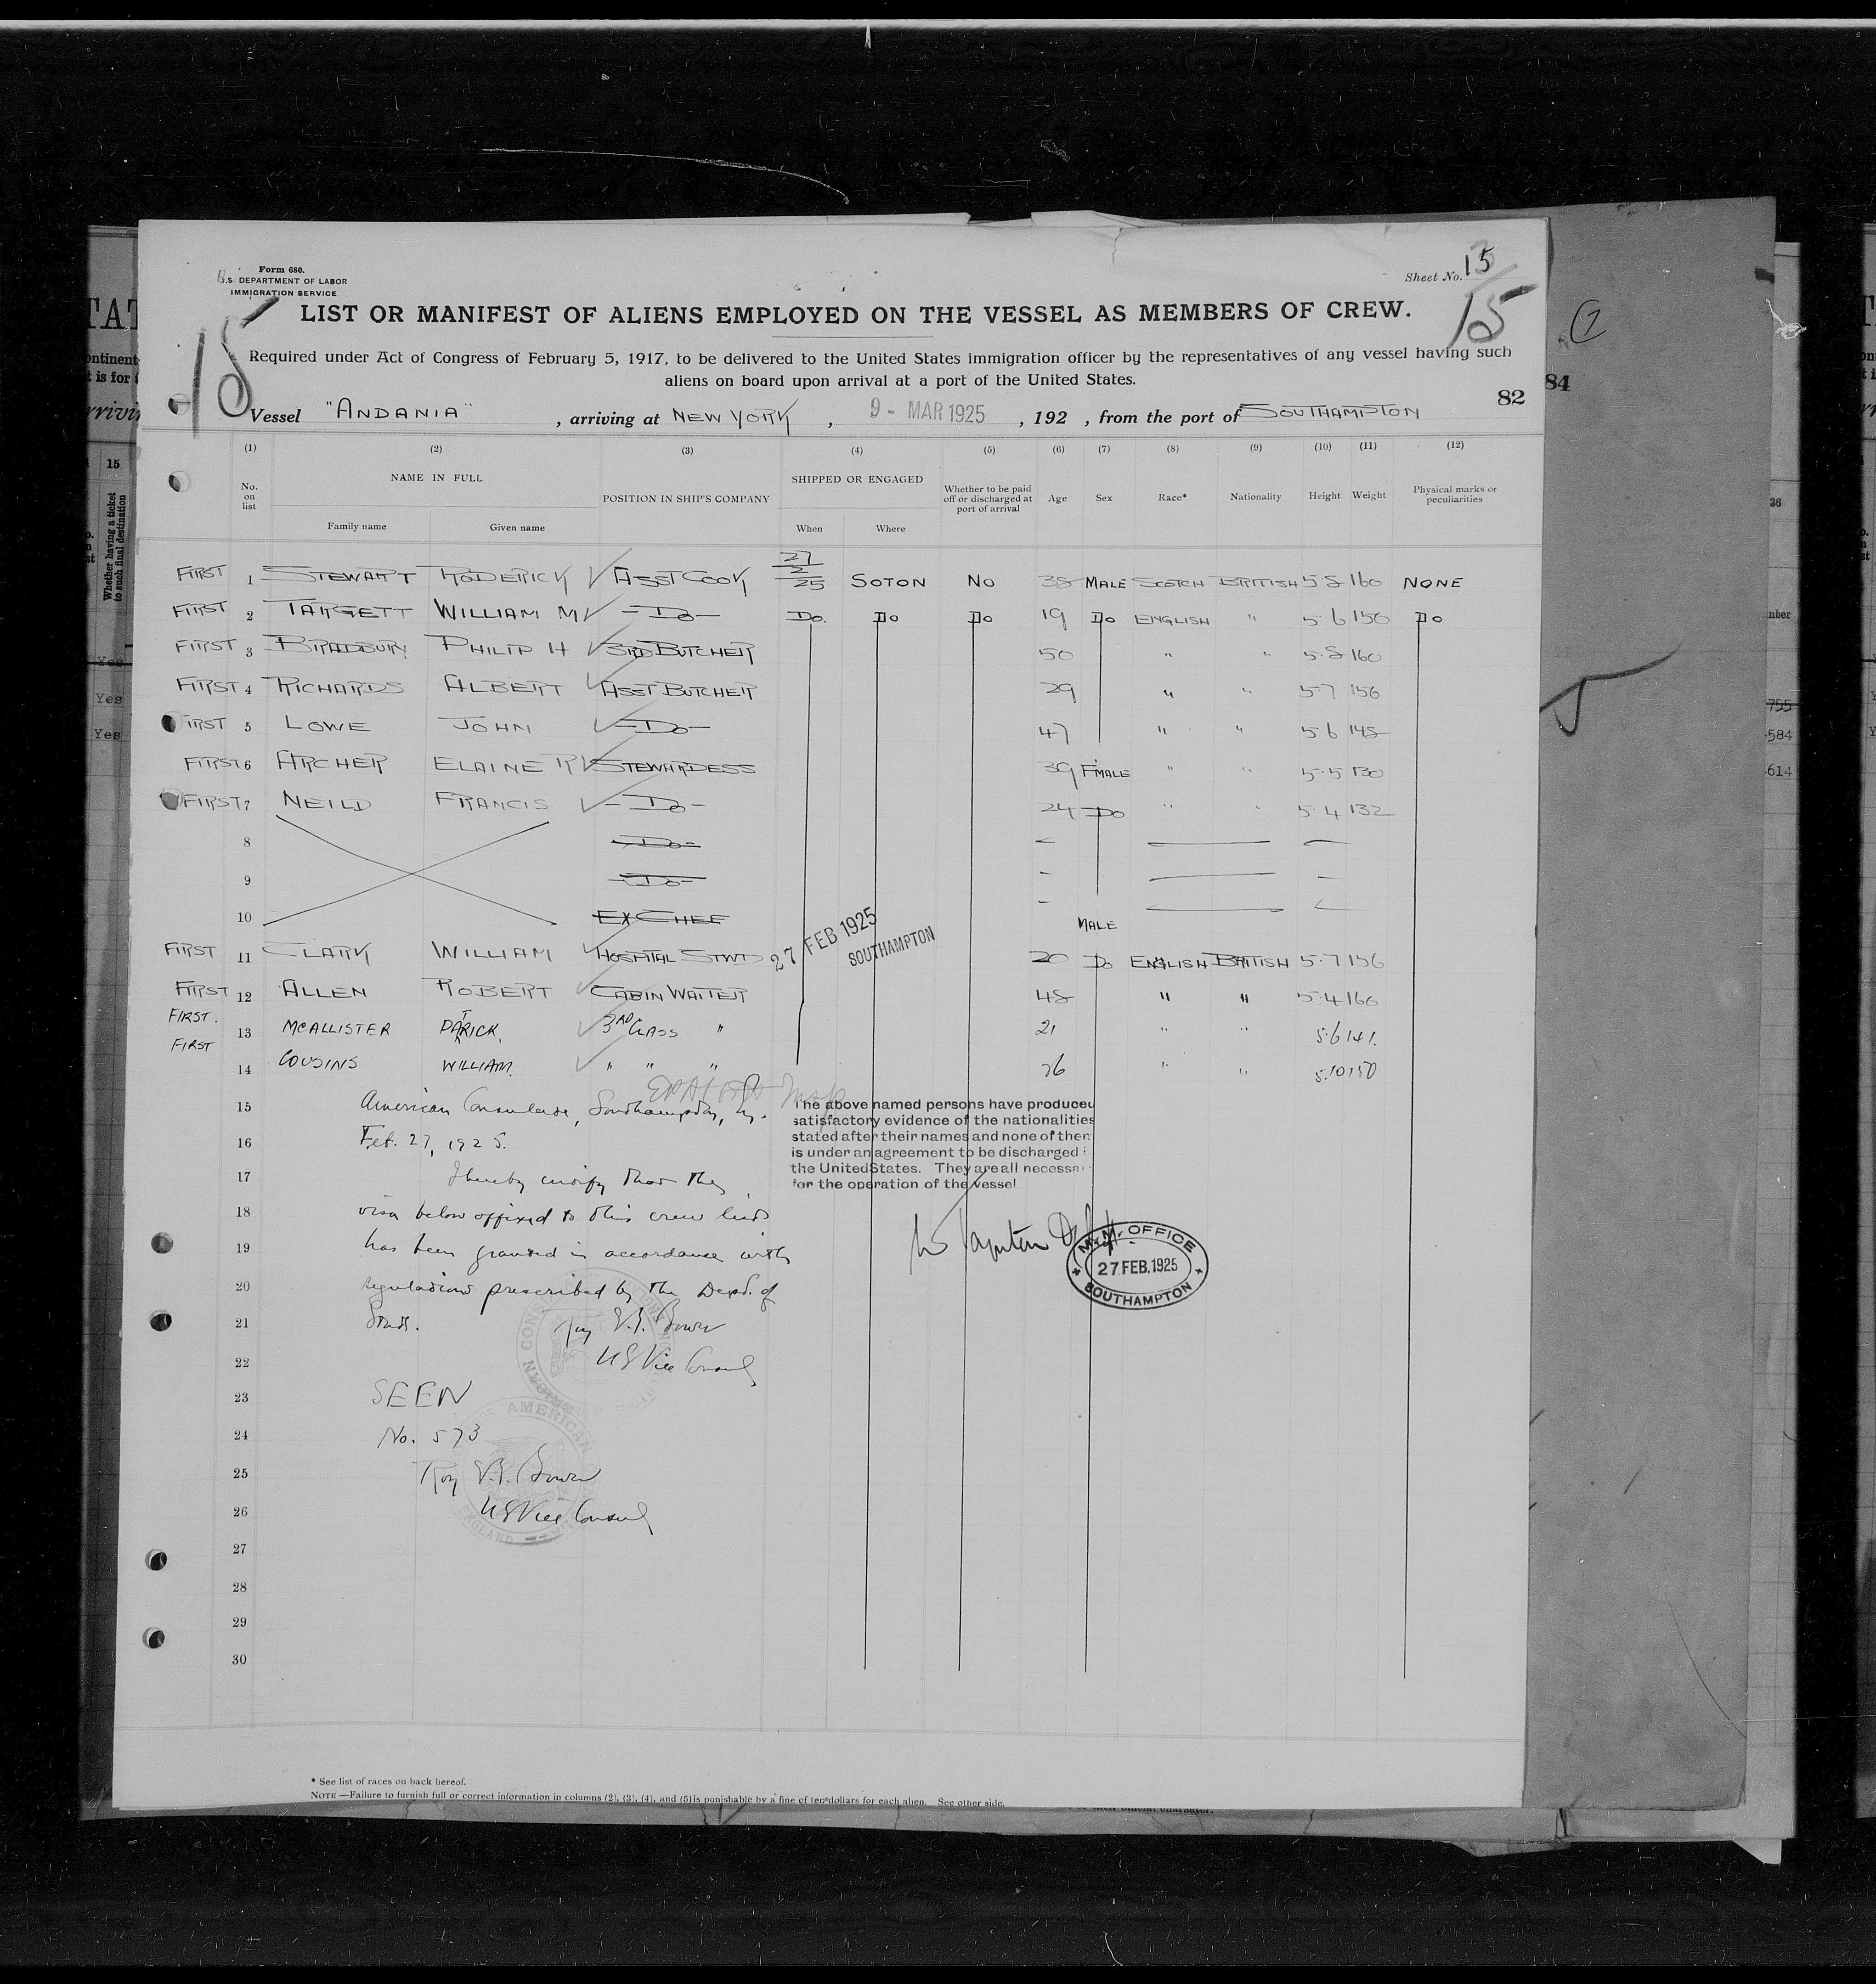 Form 680.
U.S. DEPARTMENT OF LABOR
IMMIGRATION SERVICE
Sheet No. 15
15
15
LIST OR MANIFEST OF ALIENS EMPLOYED ON THE VESSEL AS MEMBERS OF CREW.
Required under Act of Congress of February 5, 1917, to be delivered to the United States immigration officer by the representatives of any vessel having such
aliens on board upon arrival at a port of the United States.
82
84
Vessel "ANDANIA", arriving at NEW YORK, 9 - MAR 1925, 192 , from the port of SOUTHAMPTON
(1) (2) (3) (4) (5) (6) (7) (8) (9) (10) (11) (12)
No. on list NAME IN FULL POSITION IN SHIP'S COMPANY SHIPPED OR ENGAGED Whether to be paid off or discharged at port of arrival Age Sex Race* Nationality Height Weight Physical marks or peculiarities
Family name Given name When Where
FIRST 1 STEWART RODERICK ASST COOK 27/2/25 SOTON NO 38 MALE SCOTCH BRITISH 5 8 160 NONE
FIRST 2 TARGETT WILLIAM M - Do - Do. Do Do 19 Do ENGLISH " 5 6 150 Do
FIRST 3 BRADBURY PHILIP H 3RD BUTCHER 50 " " 5.8 160
FIRST 4 RICHARDS ALBERT ASST BUTCHER 29 " " 5 7 156
FIRST 5 LOWE JOHN - Do - 47 " " 5 6 145
FIRST 6 ARCHER ELAINE R STEWARDESS 39 FMALE " " 5.5 130
FIRST 7 NEILD FRANCIS - Do - 24 Do " " 5.4 132
8 - Do -
9 - Do -
10 EX CHEF
MALE
27 FEB 1925
SOUTHAMPTON
FIRST 11 CLARK WILLIAM HOSPITAL STWD 20 Do ENGLISH BRITISH 5.7 156
FIRST 12 ALLEN ROBERT CABIN WAITER 48 " " 5.4 160
FIRST. 13 MCALLISTER PATRICK. 3RD CLASS " 21 " " 5.6 141.
FIRST 14 COUSINS WILLIAM. " " " 26 " " 5.10 150
15 American Consulate, Southampton, Eng.
16 Feb. 27, 1925.
17 I hereby certify that the
18 visa below affixed to this crew list
19 has been granted in accordance with
20 regulations prescribed by the Dept. of
21 State. Roy E.B. Bower
22 US Vice Consul
The above named persons have produced
satisfactory evidence of the nationalities
stated after their names and none of them
is under an agreement to be discharged i
the United States. They are all necessa
for the operation of the vessel
M.M. OFFICE
27 FEB. 1925
SOUTHAMPTON
23 SEEN
24 No. 573
25 Roy E.B. Bower
26 US Vice Consul
AMERICAN
ENGLAND
27
28
29
30
* See list of races on back hereof.
NOTE —Failure to furnish full or correct information in columns (2), (3), (4), and (5) is punishable by a fine of ten dollars for each alien. See other side.